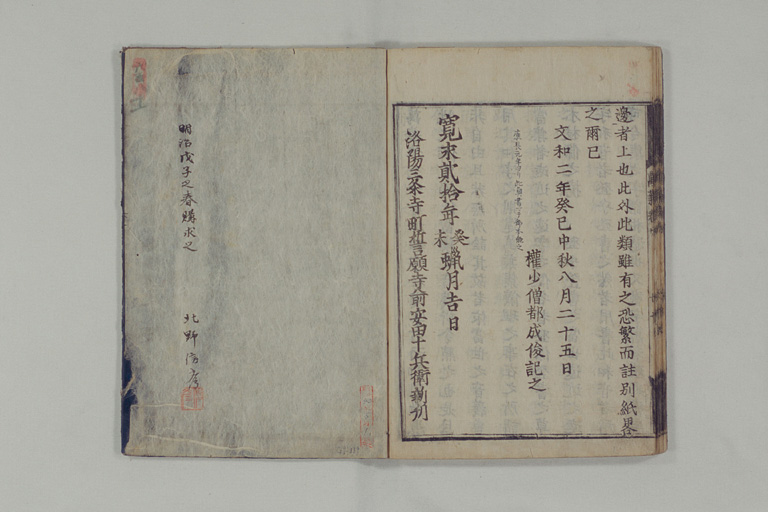 邊者上也此外此類雖有之恐繁而註別紙畧
之爾已
文和二年癸巳中秋八月二十五日
權少僧都成俊記之
寛永貳拾年癸未臘月吉日
洛陽三条寺町誓願寺前安田十兵衛新刊
明治戊子之春購求之
北野